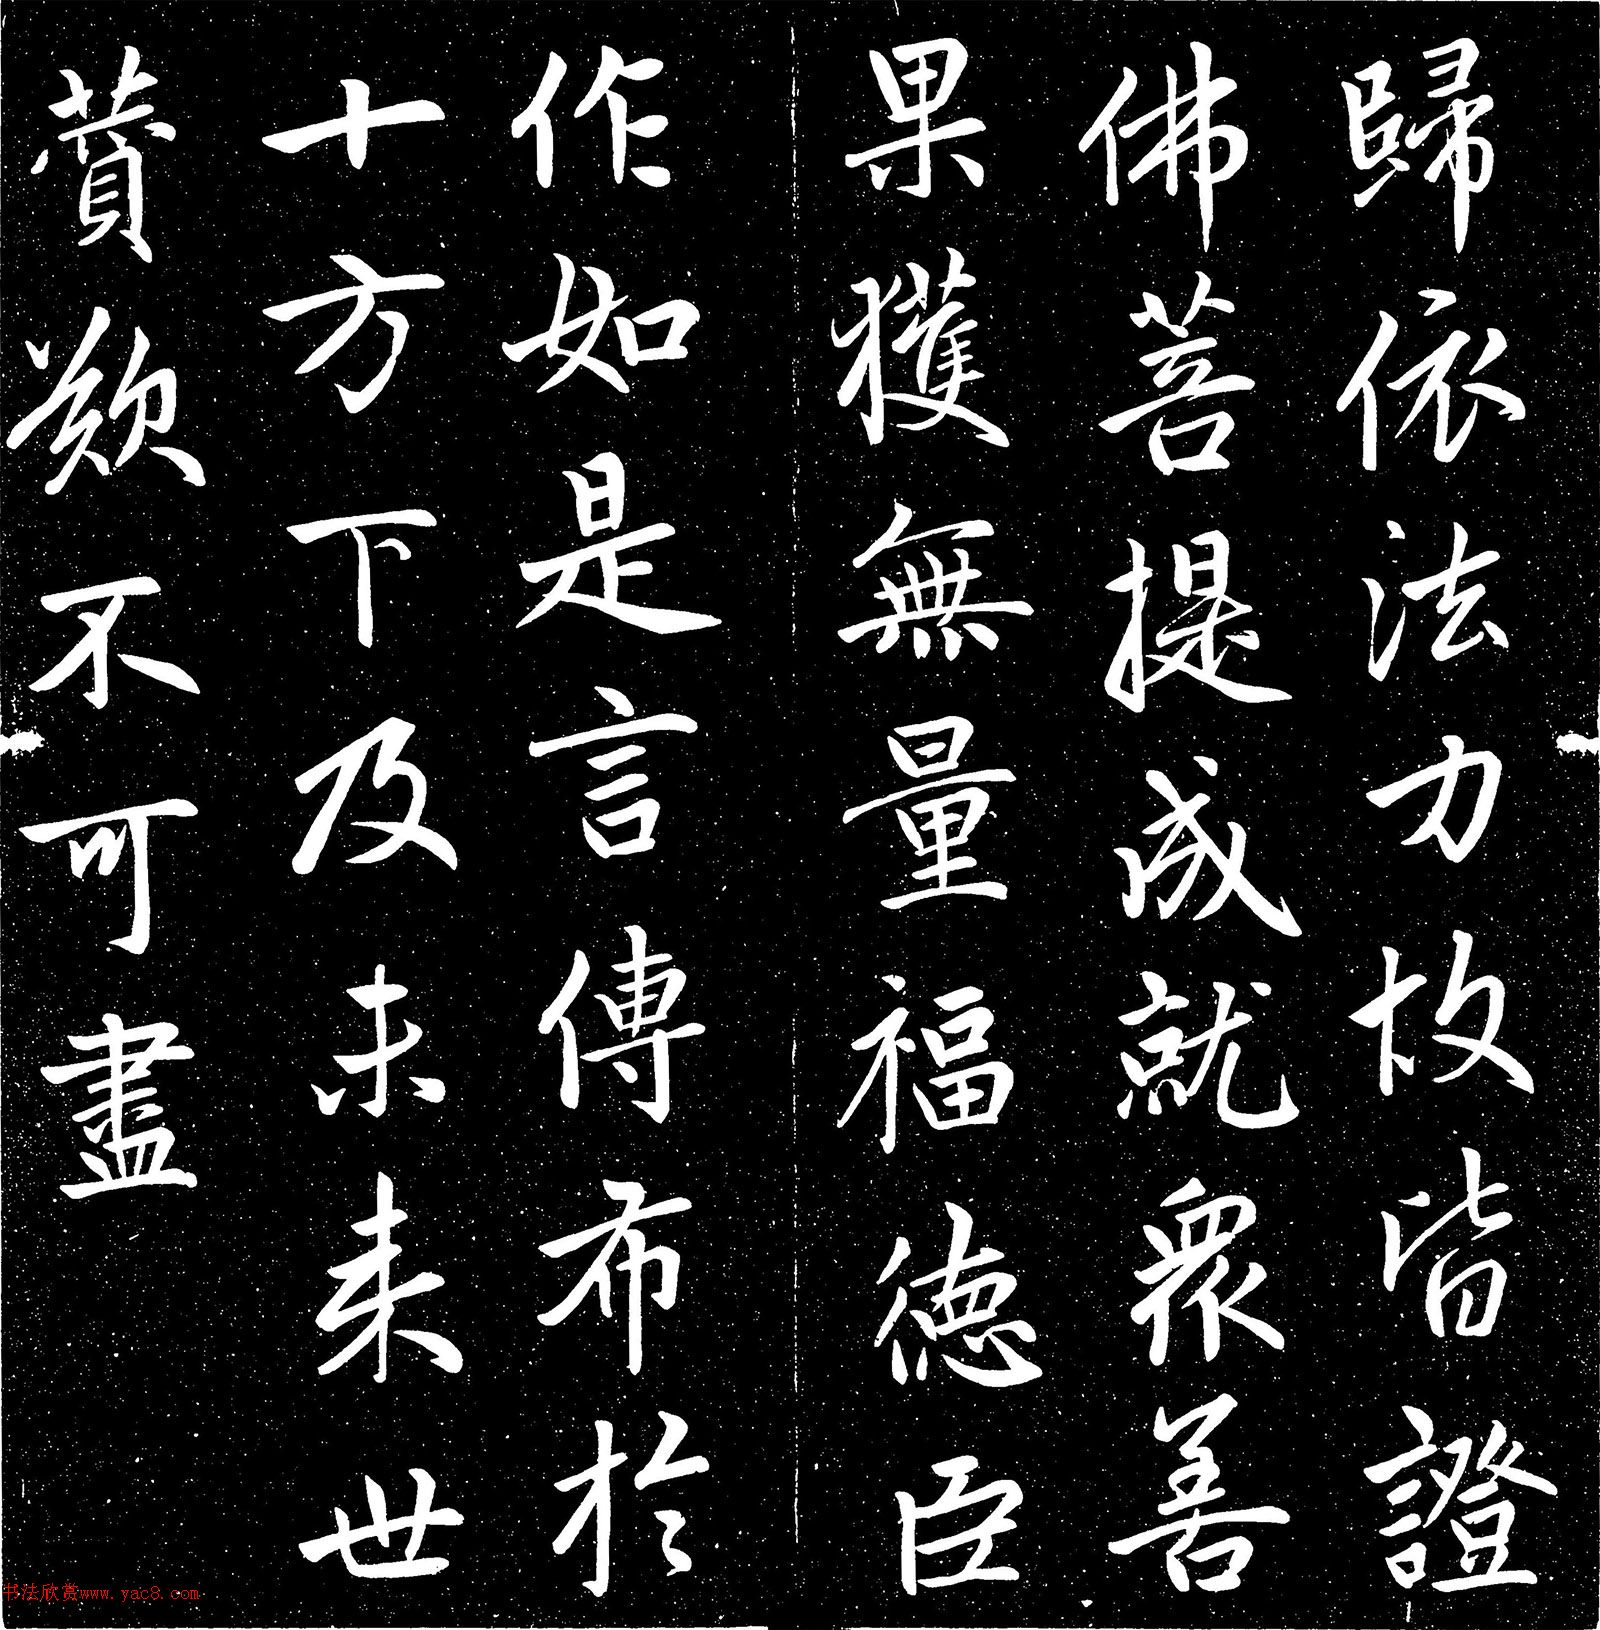 歸依法力故皆證
佛菩提成就衆善
果獲無量福德臣
作如是言傳布於
十方下及未来世
讃歎不可盡
书法欣赏www.yac8.com